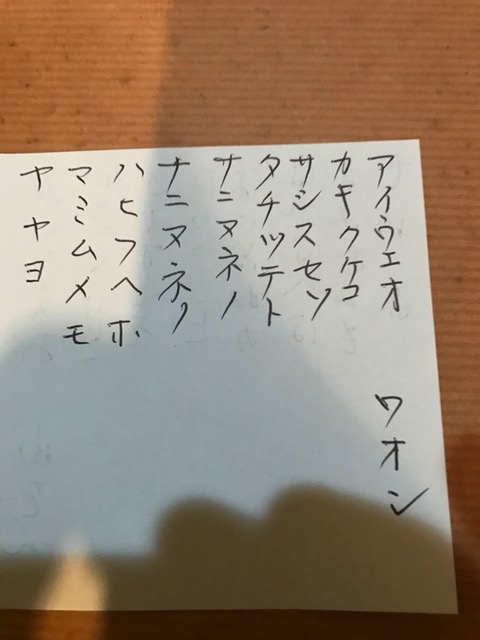 アイウエオ
カキクケコ
サシスセソ
タチツテト
サニヌネノ
ナニヌネノ
ハヒフヘホ
マミムメモ
ヤヤヨ
ワオン